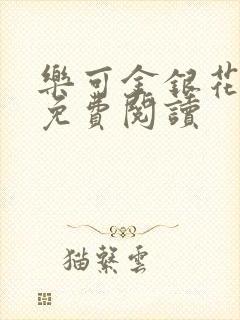 樂可金銀花
免費閱讀
猫繫雲